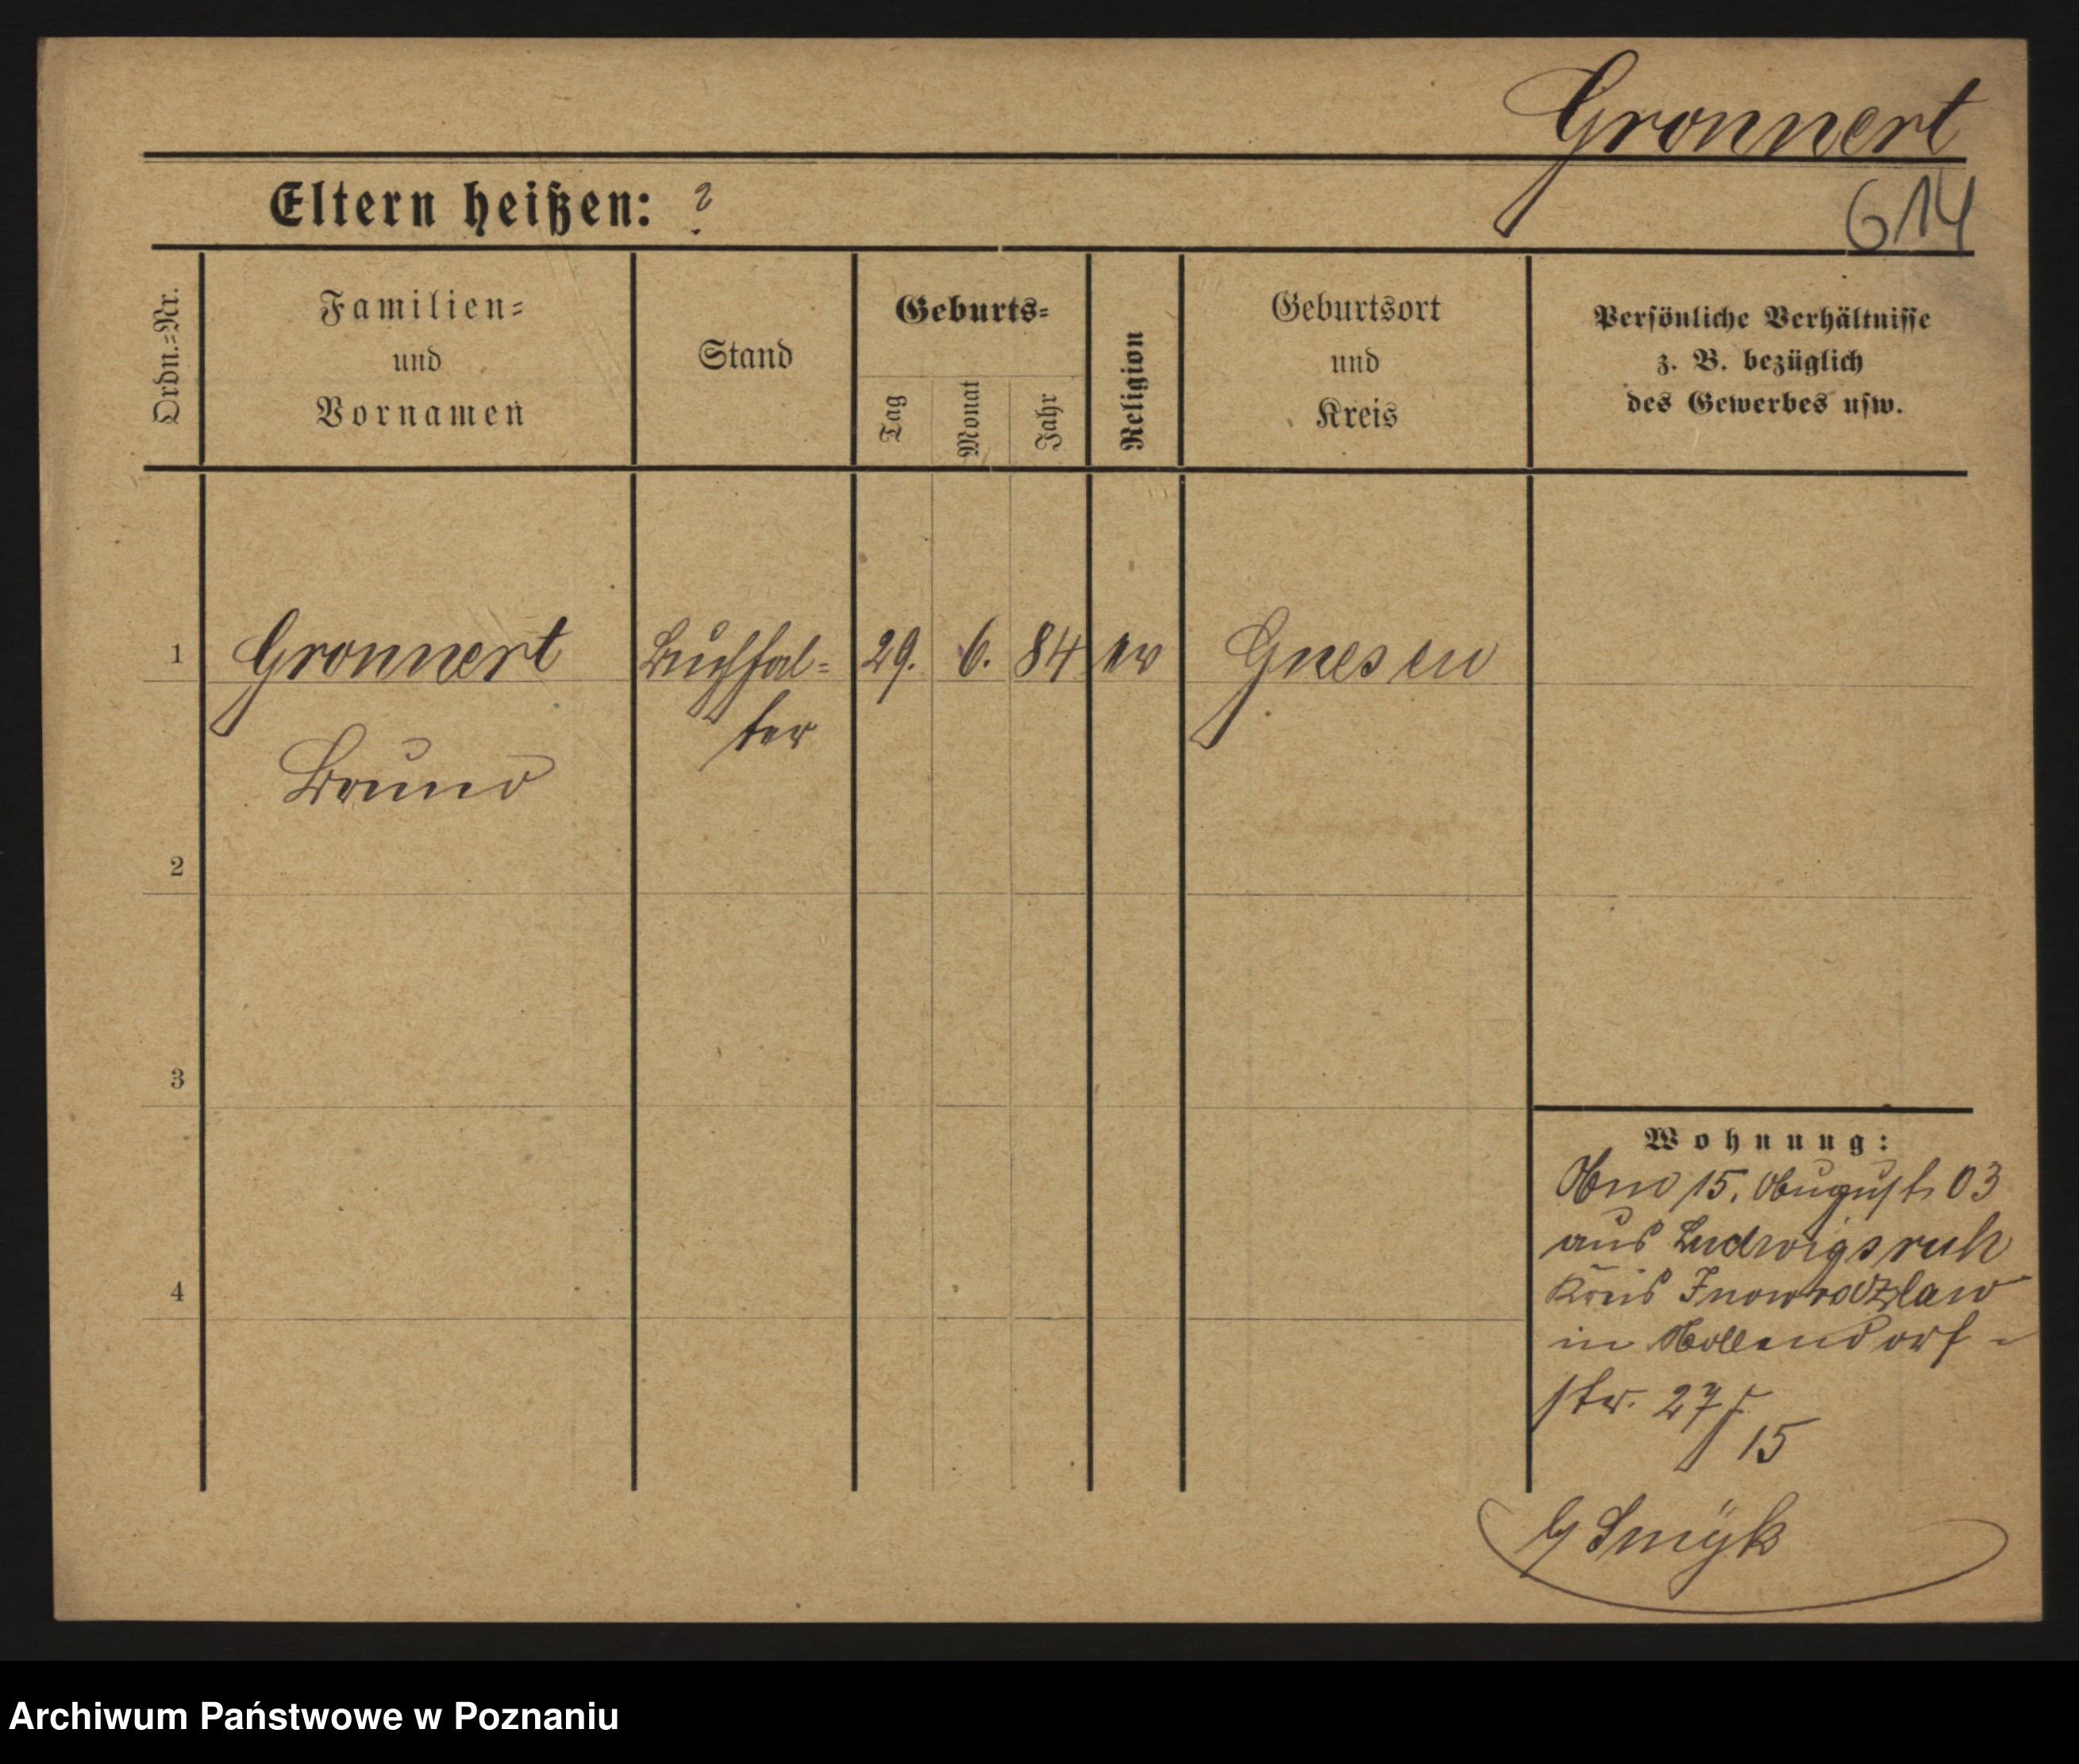 Gronnert
Eltern heißen: ?
614
Ordn.=Nr.
Familien=
und
Vornamen
Stand
Geburts=
Tag
Monat
Jahr
Religion
Geburtsort
und
Kreis
Persönliche Verhältnisse
z. B. bezüglich
des Gewerbes usw.
1 Gronnert Buchhal= 29. 6. 84 ev Gnesen
ter
Bruno
2
3
4
Wohnung:
15. August 03
aus Ludwigsruh
Kreis Inowrazlaw
in Nollendorf=
str. 27
15
Smÿk
Archiwum Państwowe w Poznaniu